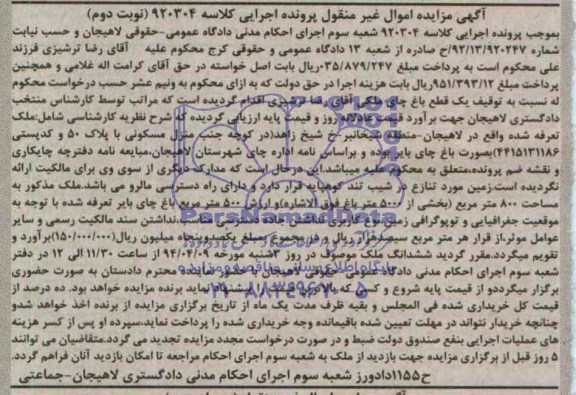 آگهی مزایده اموال غیر منقول پرونده اجرایی کلاسه ۹۲۰۳۰۴ (نوبت دوم)
بموجب پرونده اجرایی کلاسه ۹۲۰۳۰۴ شعبه سوم اجرای احکام مدنی دادگاه عمومی-حقوقی لاهیجان و حسب نیابت
شماره ۹۲/۱۳/۹۲۰۲۴۷/ح صادره از شعبه ۱۳ دادگاه عمومی و حقوقی کرج محکوم علیه آقای رضا ترشیزی فرزند
علی محکوم است به پرداخت مبلغ ۳۵/۸۷۹/۲۴۷-ریال بابت اصل خواسته در حق آقای کرامت اله غلامی و همچنین
پرداخت مبلغ ۹۵۱/۳۹۳/۱۲ریال بابت هزینه اجرا در حق دولت که به ازای محکوم به ونیم عشر حسب درخواست محکوم
له نسبت به توقیف یک قطع باغ چای ملکی آقای رضا ترشیزی اقدام گردیده است که مراتب توسط کارشناس منتخب
دادگستری لاهیجان جهت برآورد قیمت عادلانه روز و قیمت پایه ارزیابی گردیده که شرح نظریه کارشناسی شامل:ملک
تعرفه شده واقع در لاهیجان-منطقه شیخانبر-خ شیخ زاهد(در کوچه جنب منزل مسکونی با پلاک ۵۰ و کدپستی
۴۴۱۵۱۳۱۱۸۶)بصورت باغ چای بایر بوده و براساس نامه اداره چای شهرستان لاهیجان،مبایعه نامه دفترچه چایکاری
و نقشه ضم پرونده،متعلق به محکوم علیه میباشد.این درحال است که مدارک دیگری از سوی وی برای مالکیت ارائه
نگردیده است.زمین مورد تنازع در شیب تند کوهپایه قرار دارد و دارای راه دسترسی مالرو می باشد.ملک مذکور به
مساحت ۸۰۰ متر مربع (بخشی از ۵۰۰۰ متر باغ فوق الاشاره)و ارزش ۵۰۰ متر مربع باغ چای بایر تعرفه شده با توجه به
موقعیت جغرافیایی و توپوگرافی زمین،نوع کاربری نداشتن سند مالکیت رسمی و سایر
عوامل موثر،از قرار هر متر مربع سیصدهزار ریال و در مجموع مبلغ یکصدوپنجاه میلیون ریال(۱۵۰/۰۰۰/۰۰۰)برآورد و
تقویم میگردد.مقرر گردید ششدانگ ملک موصوف در روز ۳شنبه مورخه ۹۴/۰۴/۰۹ از ساعت ۱۱/۳۰ الی ۱۲ در دفتر
شعبه سوم اجرای احکام مدنی دادگاه حقوقی لاهیجان نماینده محترم دادستان به صورت حضوری
برگزار میگرددو از قیمت پایه شروع و کسی که بالاترین پیشنهاد نماید برنده مزایده خواهد بود. ده درصد از
قیمت کل خریداری شده فی المجلس و بقیه ظرف مدت یک ماه از تاریخ برگزاری مزایده از برنده اخذ خواهد شدو
چنانچه خریدار نتواند در مهلت تعیین شده باقیمانده وجه خریداری شده را پرداخت نماید،سپرده او پس از کسر هزینه
های عملیات اجرایی بنفع صندوق دولت ضبط و در صورت درخواست مجدد مزایده تجدید می گردد.متقاضیان می توانند
۵ روز قبل از برگزاری مزایده جهت بازدید از ملک به شعبه سوم اجرای احکام مراجعه تا امکان بازدید آنان فراهم گردد.
ح۱۱۵۵دادورز شعبه سوم اجرای احکام مدنی دادگستری لاهیجان-جماعتی
ParsNamadData